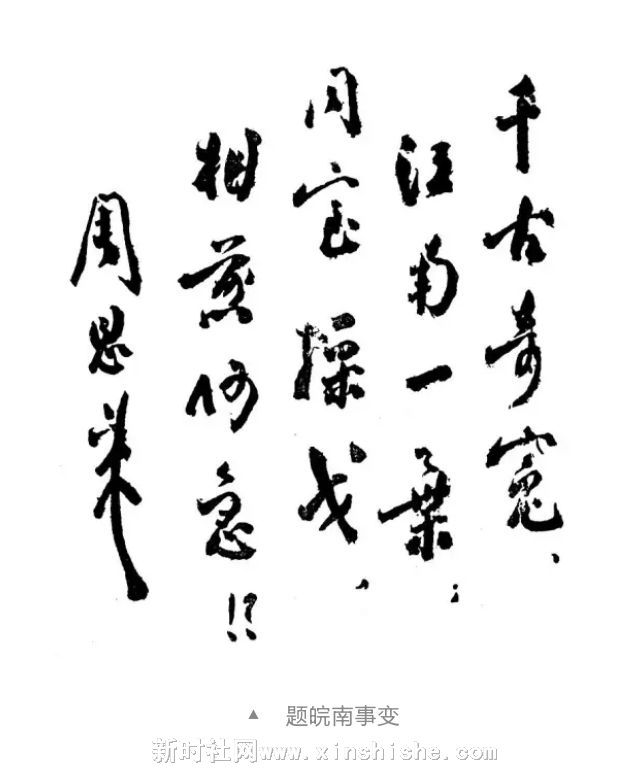 千古奇冤、
江南一葉；
同室操戈、
相煎何急！？
周恩来
▲ 题皖南事变
新时社网www.xinshishe.com